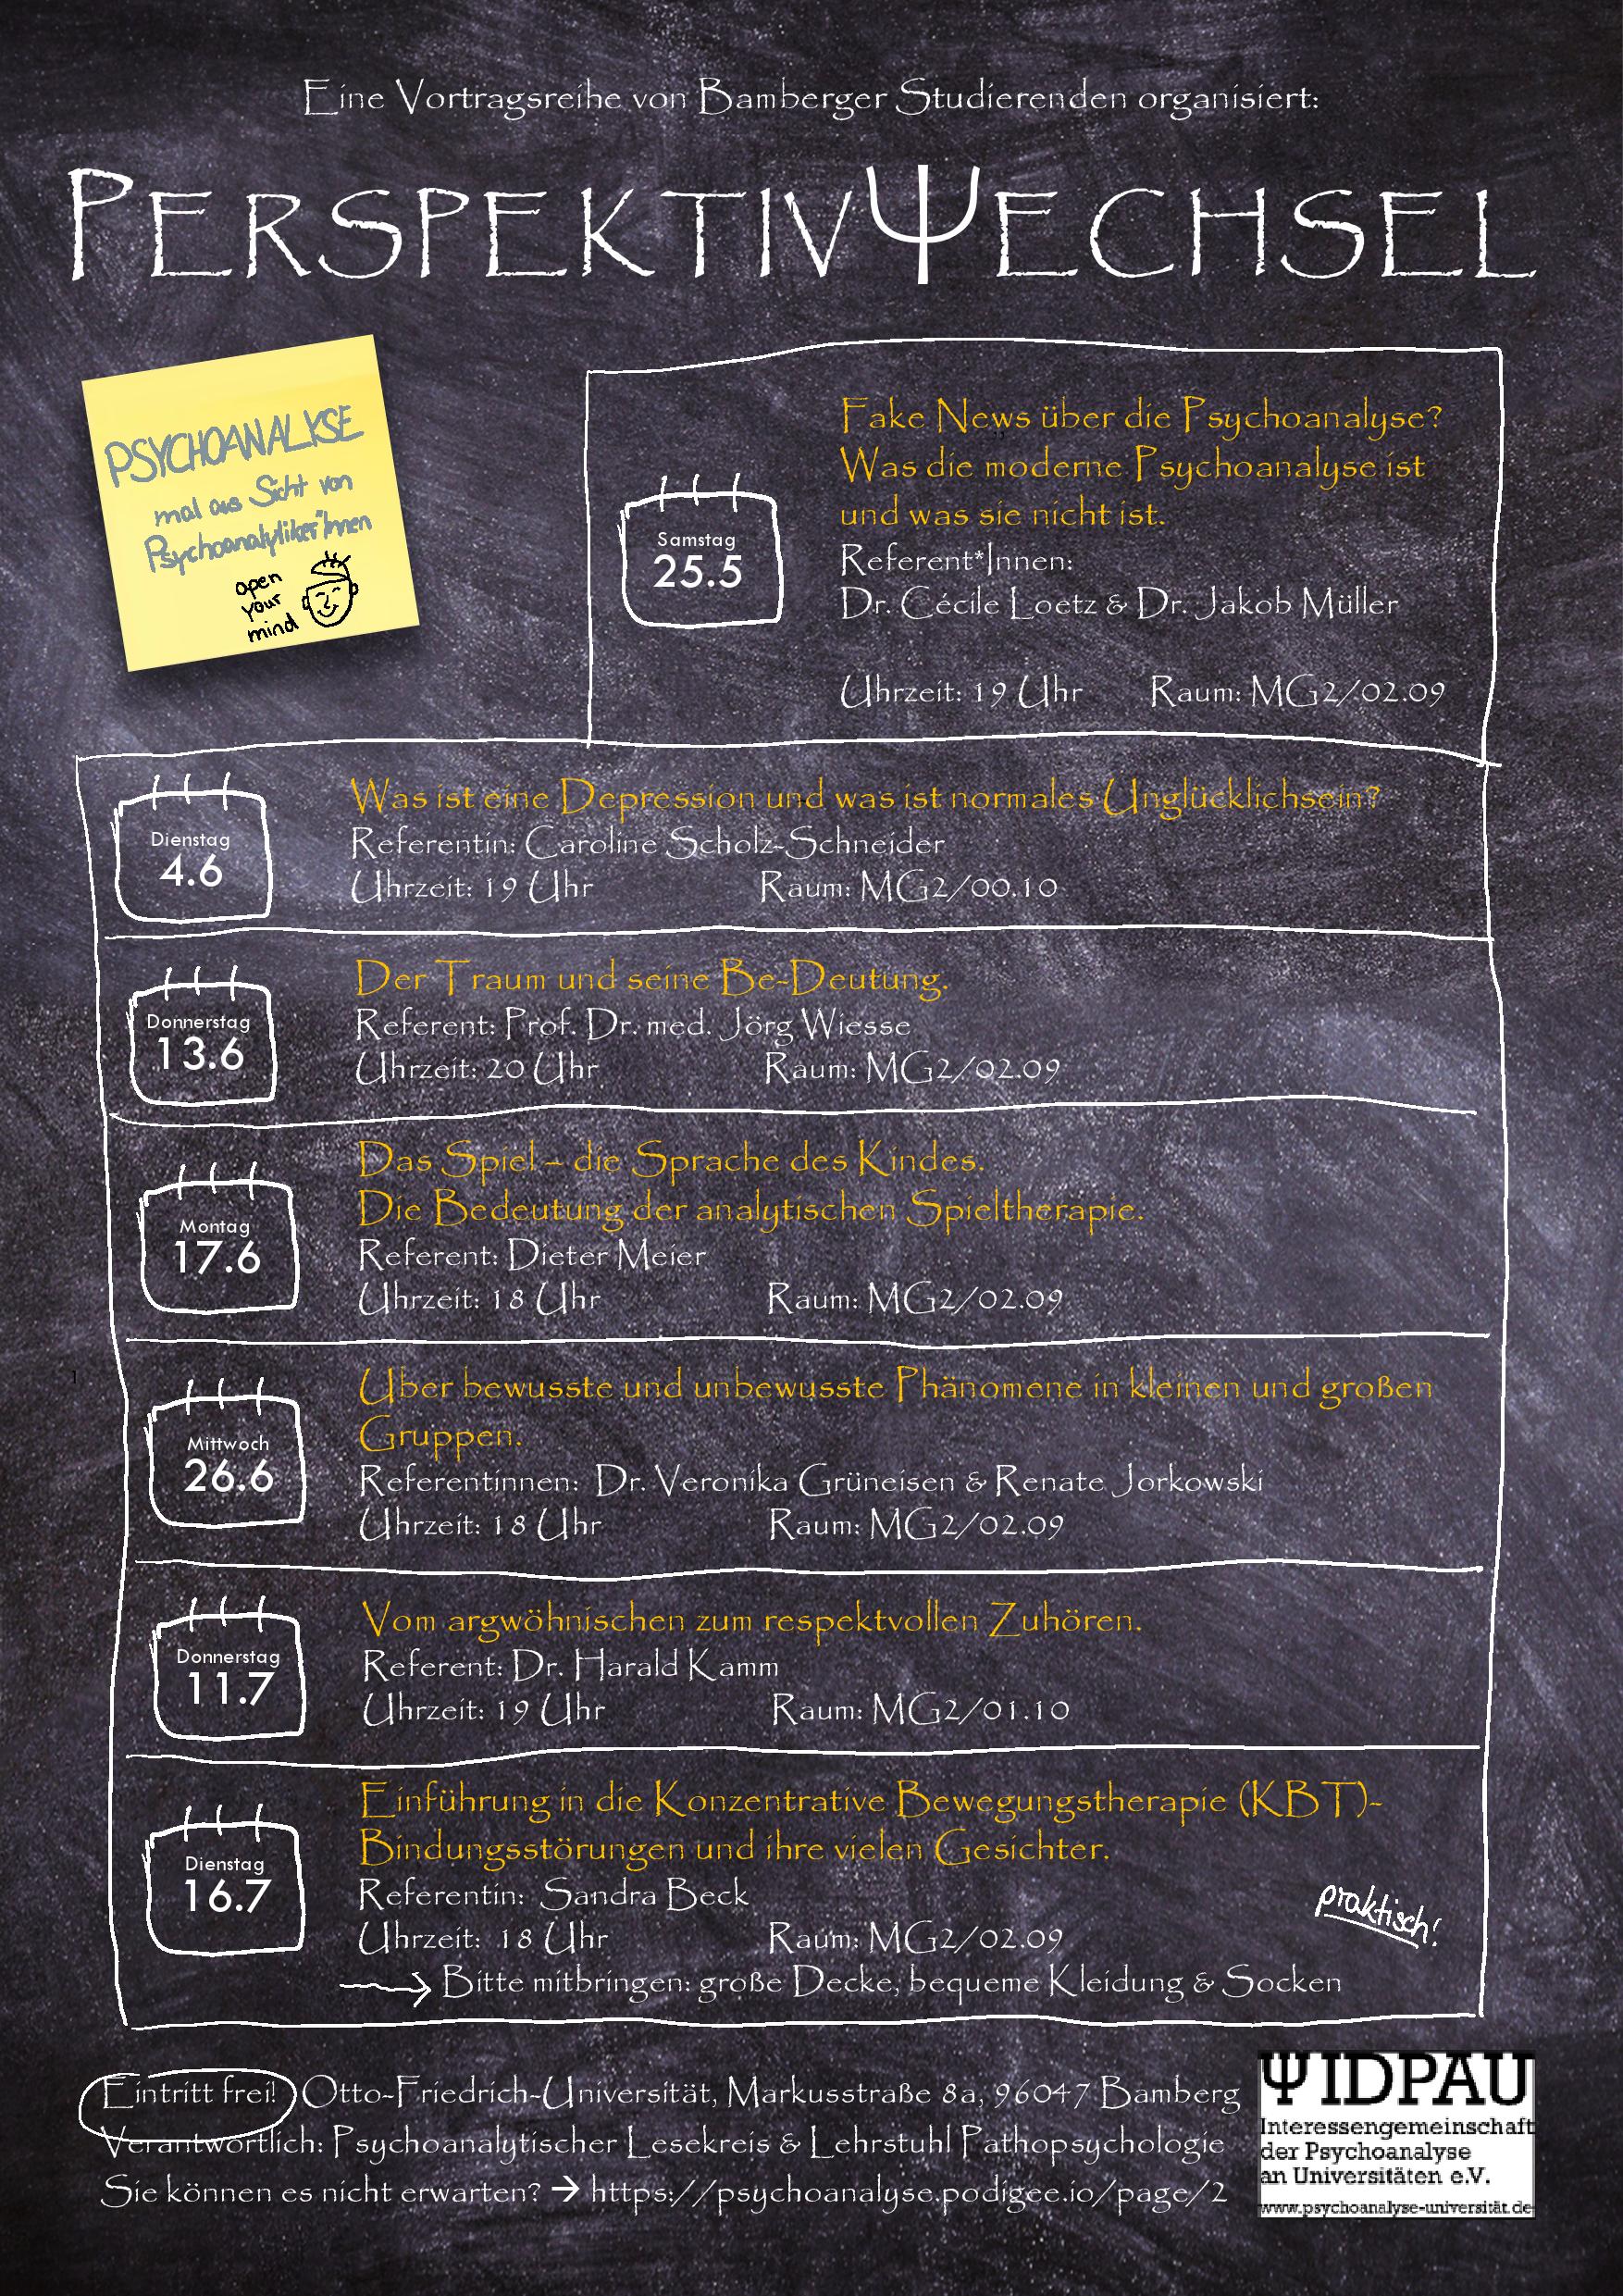 Eine Vortragsreihe von Bamberger Studierenden organisiert:
PERSPEKTIVΨECHSEL
PSYCHOANALYSE
mal aus Sicht von
Psychoanalytiker*Innen
open
your
mind
Samstag
25.5
Fake News über die Psychoanalyse?
Was die moderne Psychoanalyse ist
und was sie nicht ist.
Referent*Innen:
Dr. Cécile Loetz & Dr. Jakob Müller
Uhrzeit: 19 Uhr Raum: MG2/02.09
Dienstag
4.6
Was ist eine Depression und was ist normales Unglücklichsein?
Referentin: Caroline Scholz-Schneider
Uhrzeit: 19 Uhr Raum: MG2/00.10
Donnerstag
13.6
Der Traum und seine Be-Deutung.
Referent: Prof. Dr. med. Jörg Wiesse
Uhrzeit: 20 Uhr Raum: MG2/02.09
Montag
17.6
Das Spiel – die Sprache des Kindes.
Die Bedeutung der analytischen Spieltherapie.
Referent: Dieter Meier
Uhrzeit: 18 Uhr Raum: MG2/02.09
1
Mittwoch
26.6
Über bewusste und unbewusste Phänomene in kleinen und großen
Gruppen.
Referentinnen: Dr. Veronika Grüneisen & Renate Jorkowski
Uhrzeit: 18 Uhr Raum: MG2/02.09
Donnerstag
11.7
Vom argwöhnischen zum respektvollen Zuhören.
Referent: Dr. Harald Kamm
Uhrzeit: 19 Uhr Raum: MG2/01.10
Dienstag
16.7
Einführung in die Konzentrative Bewegungstherapie (KBT)-
Bindungsstörungen und ihre vielen Gesichter.
Referentin: Sandra Beck
Uhrzeit: 18 Uhr Raum: MG2/02.09
praktisch!
Bitte mitbringen: große Decke, bequeme Kleidung & Socken
Eintritt frei! Otto-Friedrich-Universität, Markusstraße 8a, 96047 Bamberg
Verantwortlich: Psychoanalytischer Lesekreis & Lehrstuhl Pathopsychologie
Sie können es nicht erwarten? → https://psychoanalyse.podigee.io/page/2
ΨIDPAU
Interessengemeinschaft
der Psychoanalyse
an Universitäten e.V.
www.psychoanalyse-universität.de